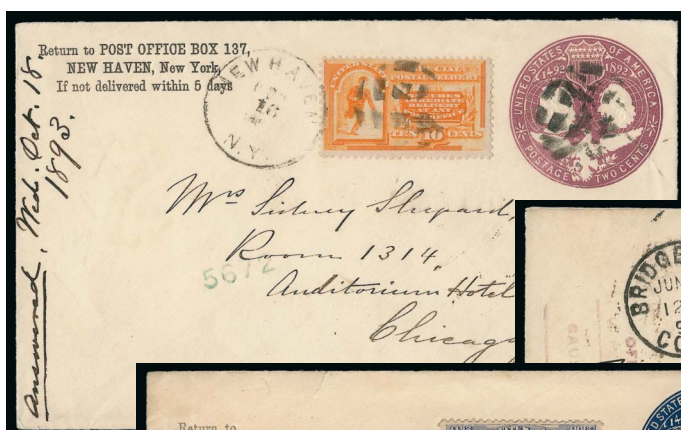 Return to POST OFFICE BOX 137,
NEW HAVEN, New York,
If not delivered within 5 days
Answered, Wed. Oct. 18.
1893.
NEW HAVEN
16
N.Y.
SPECIAL
POSTAL DELIVERY
TEN 10 CENTS
UNITED STATES OF AMERICA
1492 1892
POSTAGE TWO CENTS
Mrs Sidney Shepard,
Room 1314
5672
Auditorium Hotel
Chicago
BRIDGE
JUN
12
CO
Return to